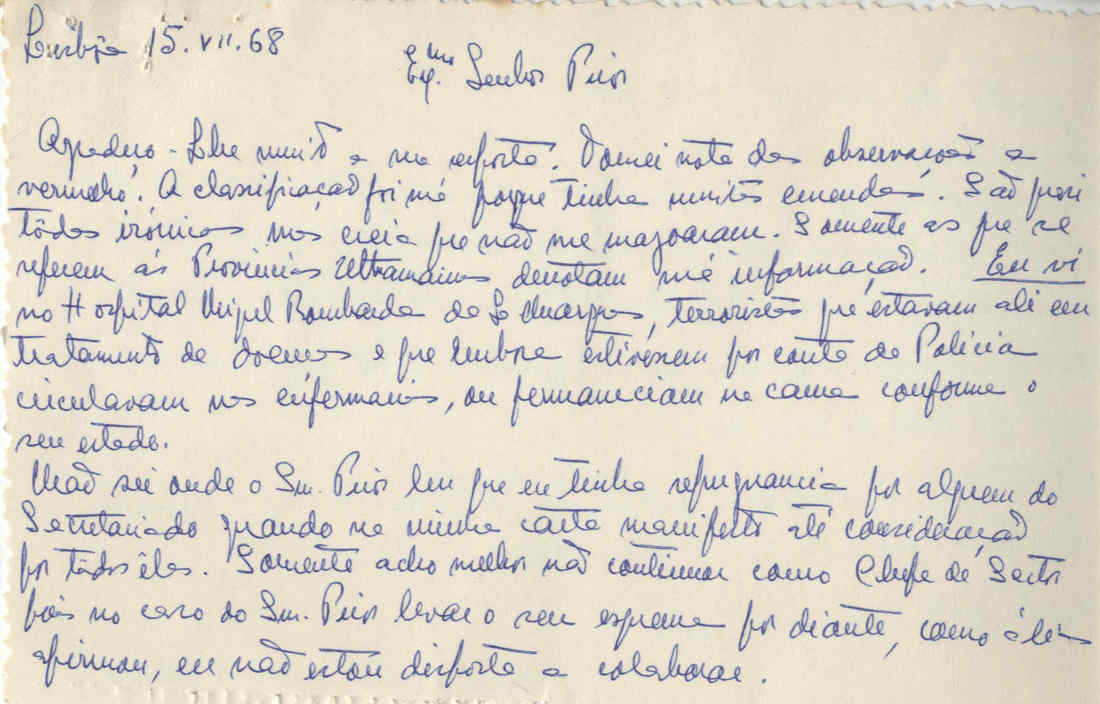 Lisboa 15.VII.68
Exmo. Senhor Prior
Agradeço-lhe muito a sua resposta. Tomei nota das observações a
vermelho. A classificação foi má porque tinha muitas emendas. São quasi
tôdas irónicas mas creia que não me magoaram. Somente as que se
referem ás Províncias Ultramarinas denotam má informação. Eu vi
no Hospital Miguel Bombarda de L. Marques, terroristas que estavam ali em
tratamento de doenças e que embora estivessem por conta da Polícia
circulavam nas enfermarias, ou permaneciam na cama conforme o
seu estado.
Não sei onde o Snr. Prior leu que eu tinha repugnancia por alguem do
Secretariado quando na minha carta manifesto até consideração
por todos êles. Somente acho melhor não continuar como Chefe de Sector
pois no caso do Snr. Prior levar o seu esquema por diante, como aliás
afirmou, eu não estou disposta a colaborar.